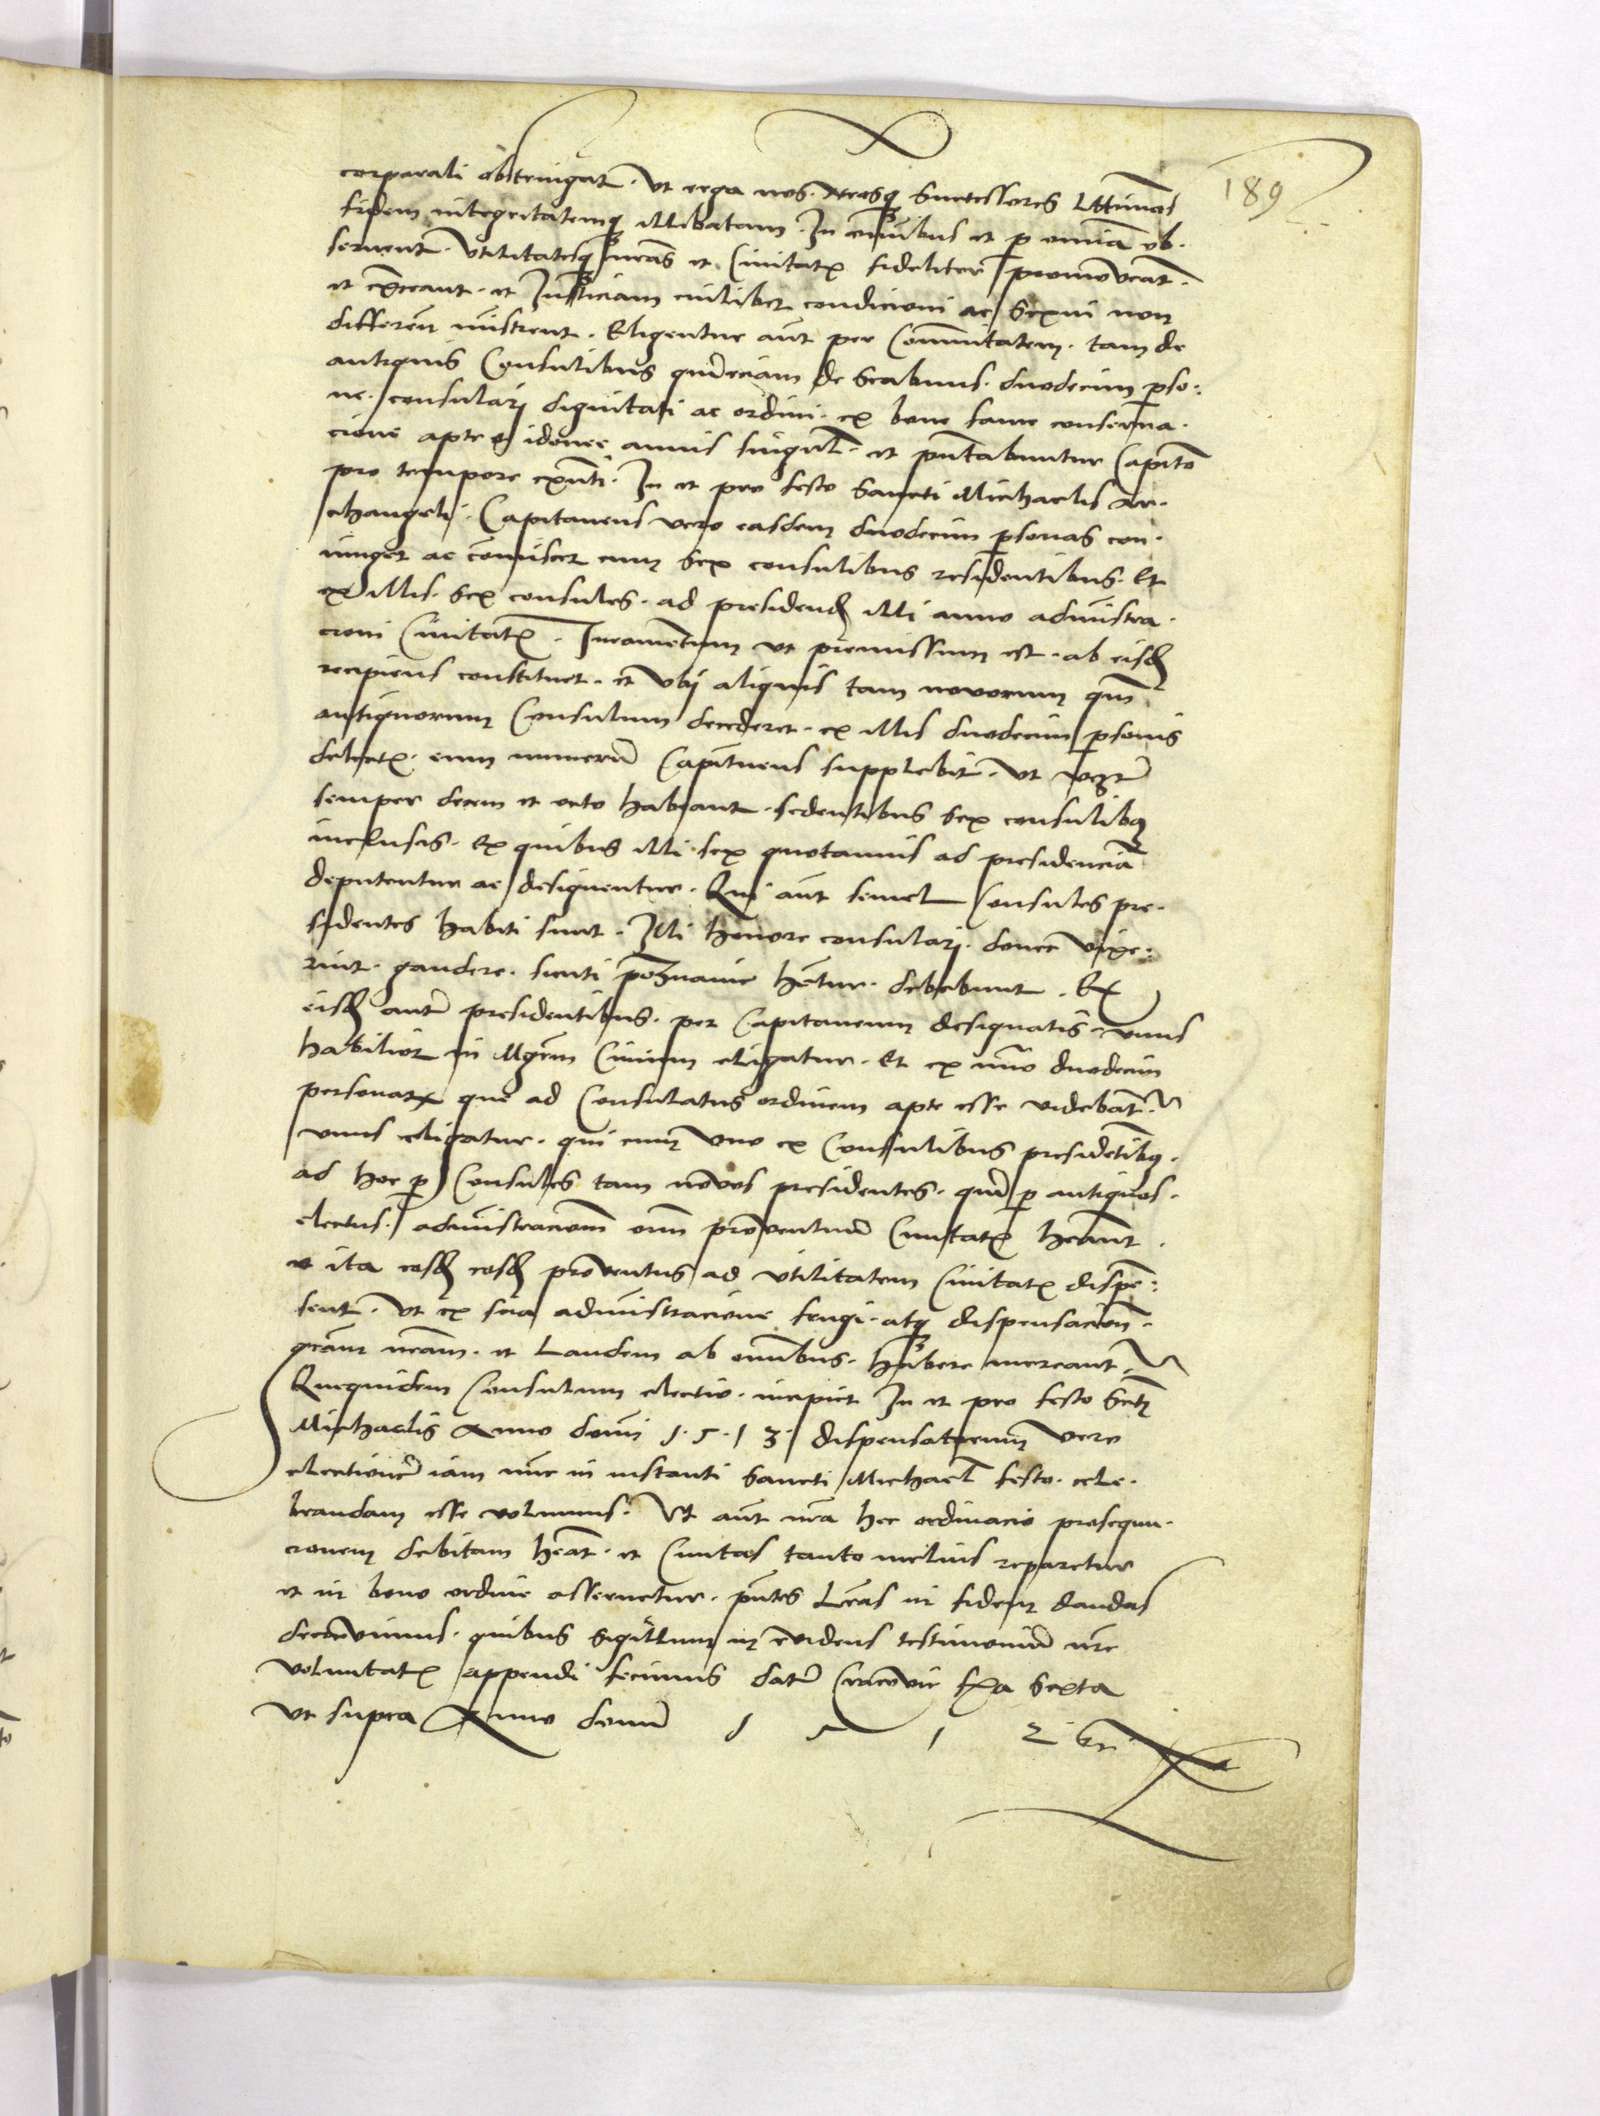 189
corporali obstringat. ut erga nos. nrosq successores Lttimos
fidem integritatemq illibatam. In omnibus et p omnia ob.
servent. Utilitatesq nras et Civitatis fideliter promoveat.
et exerceant. et Iusticiam cuilibet condicioni ac Sexui non
differen mistrent. Eligentur aut per Comunitatem. tam de
antiquis Consulibus qm eciam de Scabinis. duodecim pso:
ne. consulari dignitati ac ordini. ex bone fame conserva.
cione apte et idonee annis singul. et pntabuntur Capito
pro tempore exnti. In et pro festo Sancti Michaelis Ar.
changeli. Capitaneus vero easdem duodecim psonas con.
iunget ac comiscet cum Sex consulibus residentibus. Et
ex illis. Sex consules. ad presidend illi anno administra.
cioni Civitatis. Iuramentum ut premissum est. ab eisd
recipiens constituet. et Ubi aliquis tam novorum qm
antiquorum Consulum decederet. ex illis duodecim psonis
delectis. eum numeru Capitaneus supplebit. ut
semper decem et octo habeant. sedentibus Sex consulibq
inclusis. Ex quibus illi sex quotannis ad presidencia
deputentur ac designentur. Qui aut semel Consules pre.
sidentes habiti sunt. Illi honore consulari. donec vixe:
rint. gaudere. sicuti poznanie hentur. debebunt. Ex
eisd aute presidentibus. per Capitaneum designatis. unus
habilior in Mgrm Civium eligatur. Et ex nuo duodecim
personar que ad Consulatus ordinem apte esse videbat.
unus eligatur. qui cum Uno ex Consulibus presidetibq.
ad hoc p Consules tam novos presidentes. qm p antiquos.
electus. administracionem omn proventuum Civitatis heant.
et ita eosd eosd proventus ad utilitatem Civitatis dispe:
sent. ut ex sua administracione frugi. atq dispensacion.
gram nram. et Laudem ab omibus. habere mereant.
Quequidem Consulum electio. incipiet In et pro festo Scti
Michaelis Anno domi 1.5.13. dispensatorum vero
electione iam nunc in instanti Sancti Michael festo. cele.
brandam esse volumus. Ut aut nra hec ordinacio prosequu.
cionem debitam heat. et Civitas tanto melius reparetur
et in bono ordine asservetur. pntes Lras in fidem dandas
decrevimus. quibus Sigillum in evidens testimoniu nre
voluntatis appendi fecimus datu Cracovie fia Sexta
Ut supra Anno domi 1 5 1 2